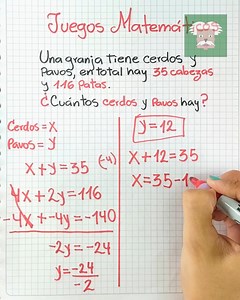 Juegos Matemát
Una granja tiene cerdos y
Pavos, en total hay 35 cabezas
y 116 Patas.
¿Cuántos cerdos y Pavos hay?
Cerdos = X
Pavos = y
X + y = 35 (-4)
4X + 2y = 116
-4X + -4y = -140
-2y = -24
y = -24
-2
y = 12
X + 12 = 35
X = 35 - 1